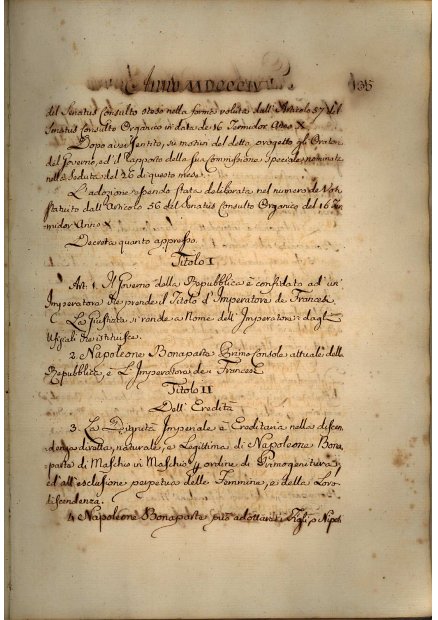 Anni MDCCCIV
135
del Senatus Consulto steso nella forma voluta dall'Articolo 57 del
Senatus Consulto Organico in data de 16 Termidor Anno X
Dopo aver sentito, sui motivi del detto progetto gli Oratori
del Governo, ed il Rapporto della sua Commissione Speciale nominata
nella seduta del 26 di questo mese
L'adozione essendo stata deliberata nel numero de Voti
statuito dall'Articolo 56 del Senatus Consulto Organico del 16 Ter
midor Anno X
Decreta quanto appresso.
Titolo I
Art: 1. Il Governo della Repubblica è confidato ad un
Imperatore che prende il Titolo d'Imperatore de Francesi
La Giustizia si rende a Nome dell'Imperatore dagli
Ufiziali che istituisce.
2. Napoleone Bonaparte Primo Console attuale della
Repubblica, è L'Imperatore dei Francesi
Titolo II
Dell'Eredità
3. La Dignità Imperiale è Ereditaria nella discen
denza diretta, naturale, e Legittima di Napoleone Bona
parte di Maschio in Maschio p ordine di Primogenitura,
ed all'esclusione perpetua delle Femmine, e della Loro
discendenza.
4. Napoleone Bonaparte può adottare i Figli, o Nipoti